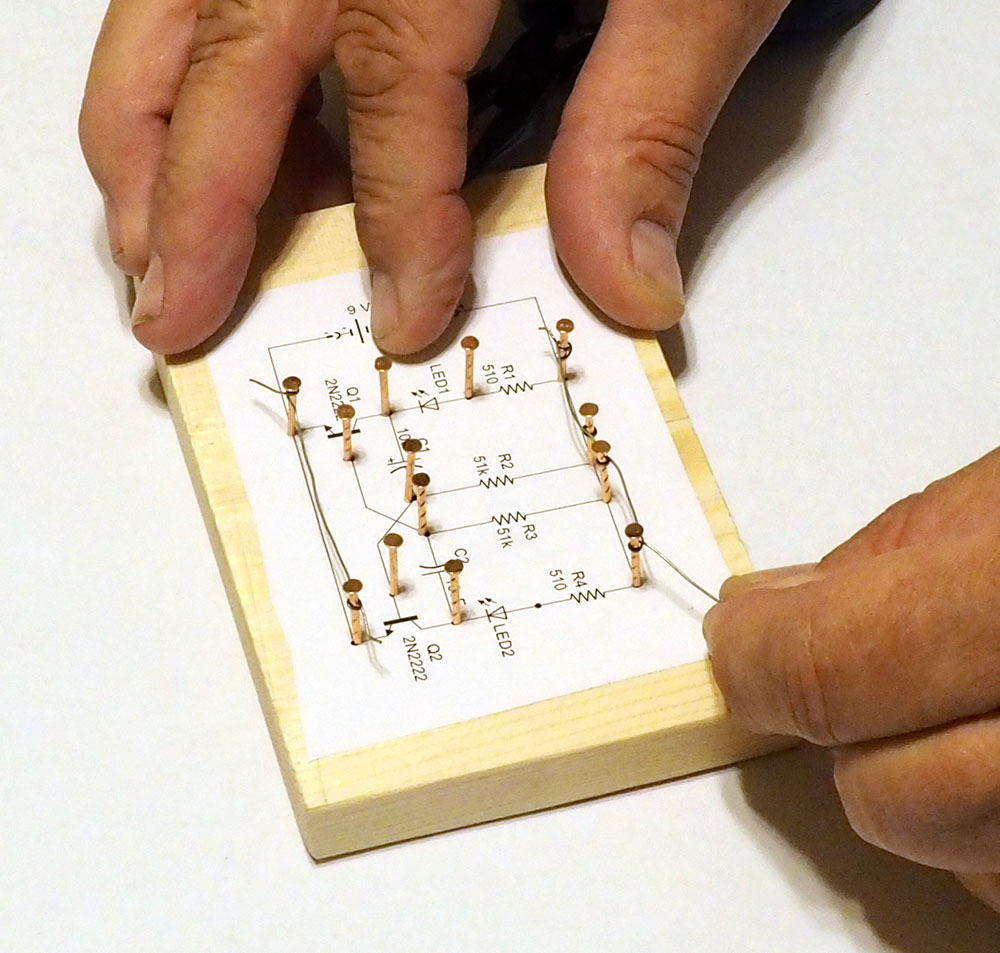 9 V
Q1
LED1
R1
510
R2
51k
R3
51k
C2
R4
510
LED2
Q2
2N2222